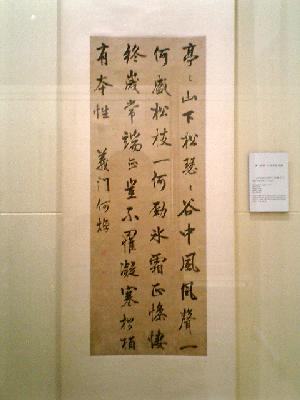 亭〻山下松瑟〻谷中風風聲一
何盛松枝一何勁冰霜正慘悽
終歲常端正豈不罹凝寒松柏
有本性 義门何焯